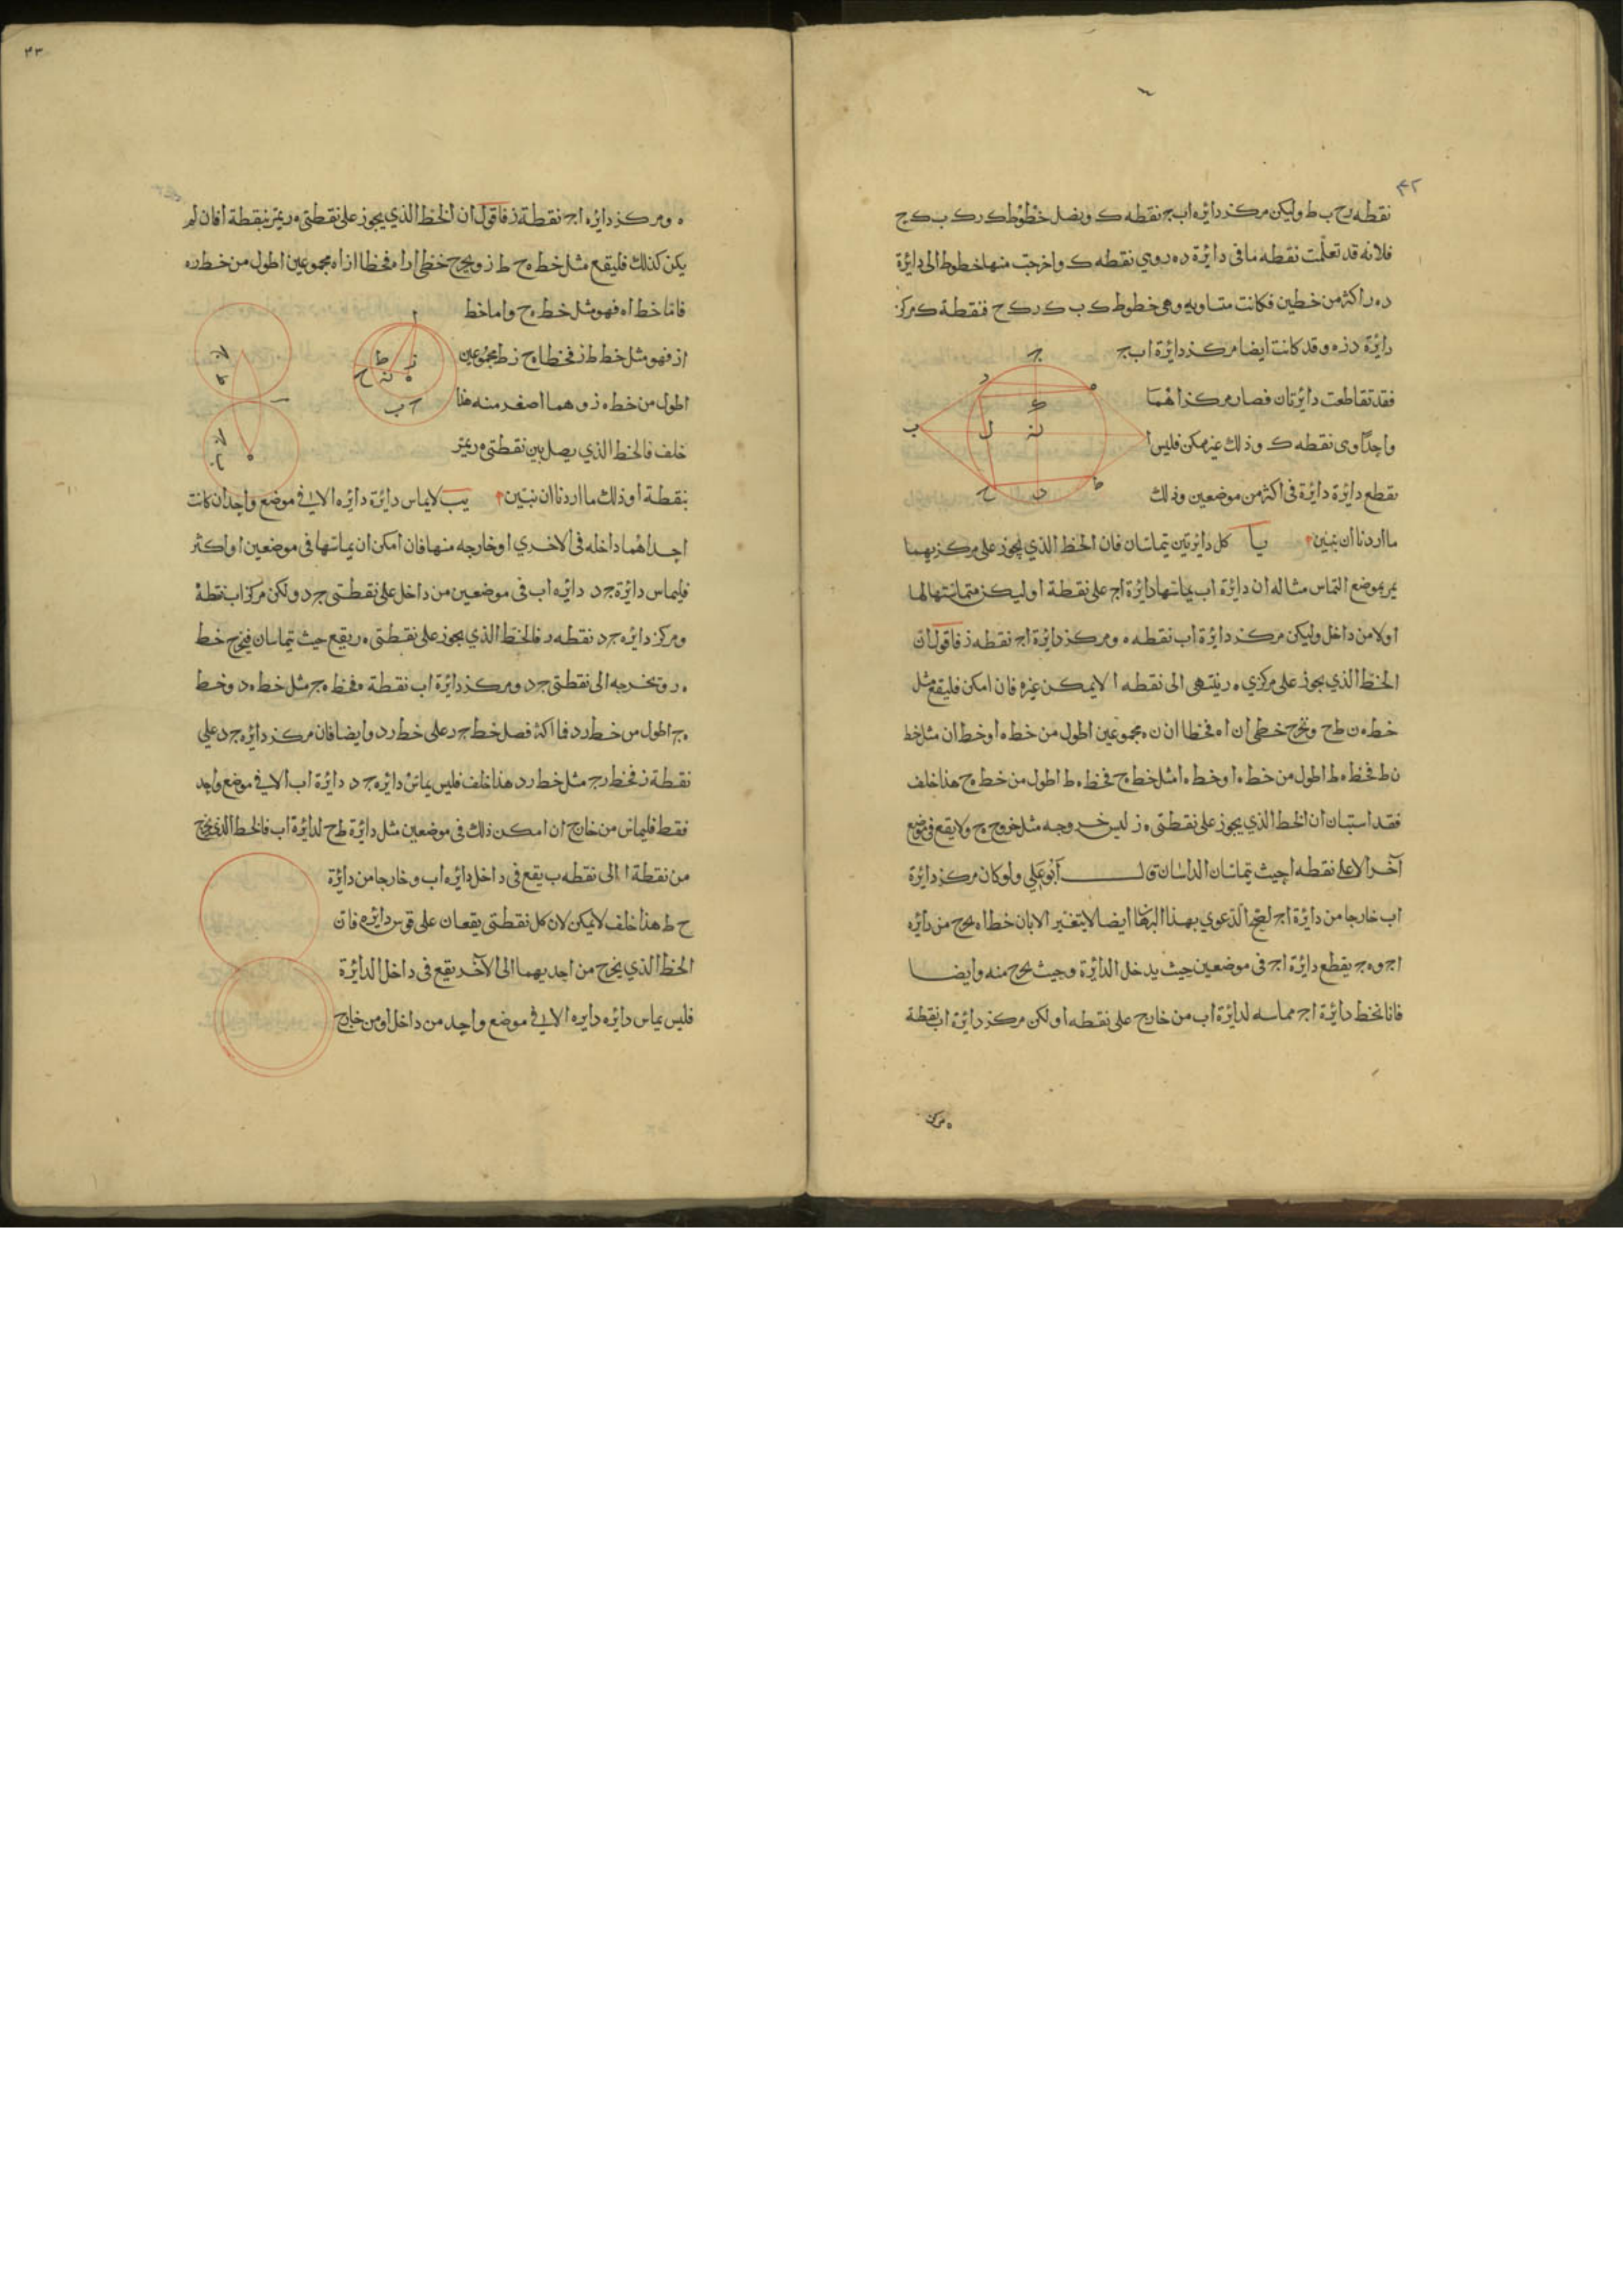 ٤٢
نقطه رح ب ط وليكن مركز دائره اب ج نقطه ك ونصل خطوط ك ر ك ب ك ح
فلانه قد تعلمت نقطه ما في دائرة د ه ر وهي نقطه ك واخرجت منها خطوط الى دائرة
د ه ر اكثر من خطين فكانت متساويه وهي خطوط ك ب ك ر ك ح فنقطة ك مركز
دائرة د ز ه وقد كانت ايضا مركز دائرة اب ج
فقد تقاطعت دائرتان فصار مركزاهما
واحدا وهي نقطه ك وذلك غير ممكن فليس
تقطع دائرة دائرة في اكثر من موضعين وذلك
ما اردنا ان نبين يا كل دائرتين تتماسان فان الخط الذي يجوز على مركزيهما
يمر بموضع التماس مثاله ان دائرة اب يماسها دائرة اج على نقطة ا وليكن مماستها لها
اولا من داخل وليكن مركز دائرة اب نقطه ه ومركز دائرة اج نقطه ز فاقول ان
الخط الذي يجوز على مركزي ه ر ينتهي الى نقطه ا لا يمكن غيره فان امكن فليقع مثل
خط ه ن ط ح ونخرج خطي ان اه فخطا ان ن ه مجموعين اطول من خط ه ا وخط ان مثل خط
ن ط فخط ه ط اطول من خط ه ا وخط ه ا مثل خط ه ح فخط ه ط اطول من خط ه ح هذا خلف
فقد استبان ان الخط الذي يجوز على نقطتي ه ز ليس خروجه مثل خروج ح ولا يقع في موضع
آخر الا على نقطه ا حيث تتماسان الدائرتان قال أبو علي ولو كان مركز دائرة
اب خارجا من دائرة اج لصح الدعوي بهذا البرهان ايضا لا يتغير الا بان خط اه يخرج من دائره
اج و ه ج يقطع دائرة اج في موضعين حيث يدخل الدائرة وحيث يخرج منه وايضا
فانا نخط دائرة اج مماسه لدائرة اب من خارج على نقطه ا ولكن مركز دائرة اب نقطة
ه مركز
٤٣
ه ومركز دائره اج نقطة ز فاقول ان الخط الذي يجوز على نقطتي ه ر يمر بنقطة ا فان لم
يكن كذلك فليقع مثل خط ه ح ط ز ونخرج خطي ا ر ا ه فخطا از اه مجموعين اطول من خط ر ه
فاما خط اه فهو مثل خط ه ح واما خط
از فهو مثل خط ط ز فخطا ه ح ز ط مجموعين
اطول من خط ه ز وهما اصغر منه هذا
خلف فالخط الذي يصل بين نقطتي ه ر يمر
بنقطة ا وذلك ما اردنا ان نبين يب لا يماس دائرة دائره الا في موضع واحد ان كانت
احداهما داخله في الاخري او خارجه منها فان امكن ان يماسها في موضعين او اكثر
فليماس دائرة ج د دائره اب في موضعين من داخل على نقطتي ج د ولكن مركز اب نقطة
ومركز دائره ج د نقطه ر فالخط الذي يجوز على نقطتي ه ر يقع حيث تتماسان فنخرج خط
ه ر ونخرجه الى نقطتي ج د ومركز دائرة اب نقطة ه فخط ه ج مثل خط ه د وخط
ه ج اطول من خط ر د فما اكثر فصل خط ج ر على خط ر د وايضا فان مركز دائره ج د على
نقطة ز فخط ر ج مثل خط ر د هذا خلف فليس يماس دائره ج د دائرة اب الا في موضع واحد
فقط فليماس من خارج ان امكن ذلك في موضعين مثل دائرة ط ح لدائرة اب فالخط الذي يخرج
من نقطة ا الى نقطه ب يقع في داخل دائره اب وخارجا من دائرة
ح ط هذا خلف لا يمكن لان كل نقطتي يقعان على قوس دائره فان
الخط الذي يخرج من احديهما الى الآخر يقع في داخل الدائرة
فليس يماس دائره دايره الا في موضع واحد من داخل او من خارج